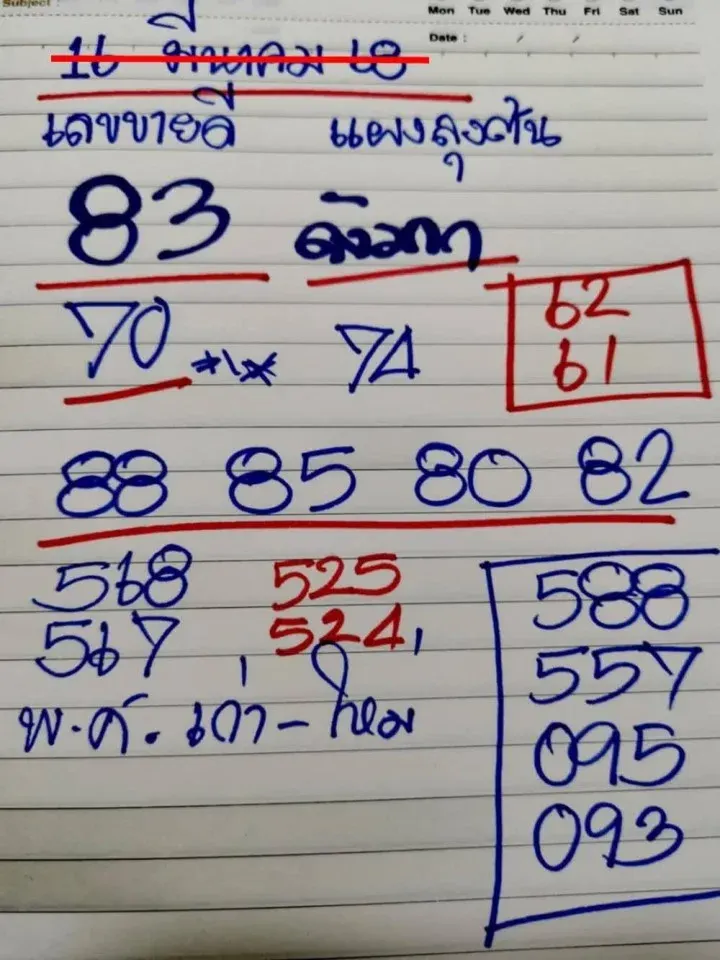 Subject :
Mon Tue Wed Thu Fri Sat Sun
Date :
16 มีนาคม 68
เลขขายดี แผงลุงต้น
83 ดังมาก
62
70 *\* 74
61
88 85 80 82
568 525 588
567 , 524, 557
พ.ศ. เก่า - ใหม่
095
093